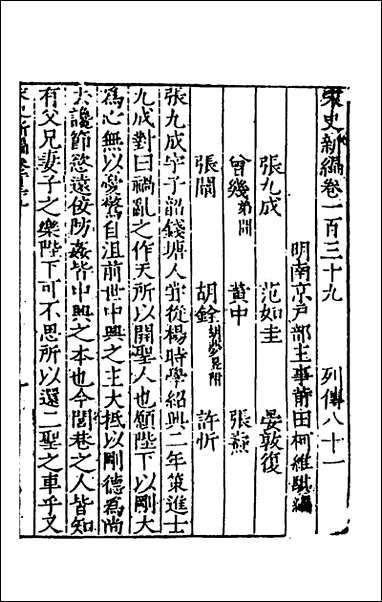 宋史新編卷一百三十九 列傳八十一
明南京戶部主事莆田柯維騏編
張九成 范如圭 晏敦復
曾幾弟開 黃中 張燾
張闡 胡銓胡夢昱附 許忻
張九成字子韶錢塘人甞從楊時學紹興二年策進士
九成對曰禍亂之作天所以開聖人也願陛下以剛大
爲心無以憂驚自沮前世中興之主大抵以剛德爲尚
去讒節慾遠佞防姦皆中興之本也今閭巷之人皆知
有父兄妻子之樂陛下可不思所以還二聖之車乎又